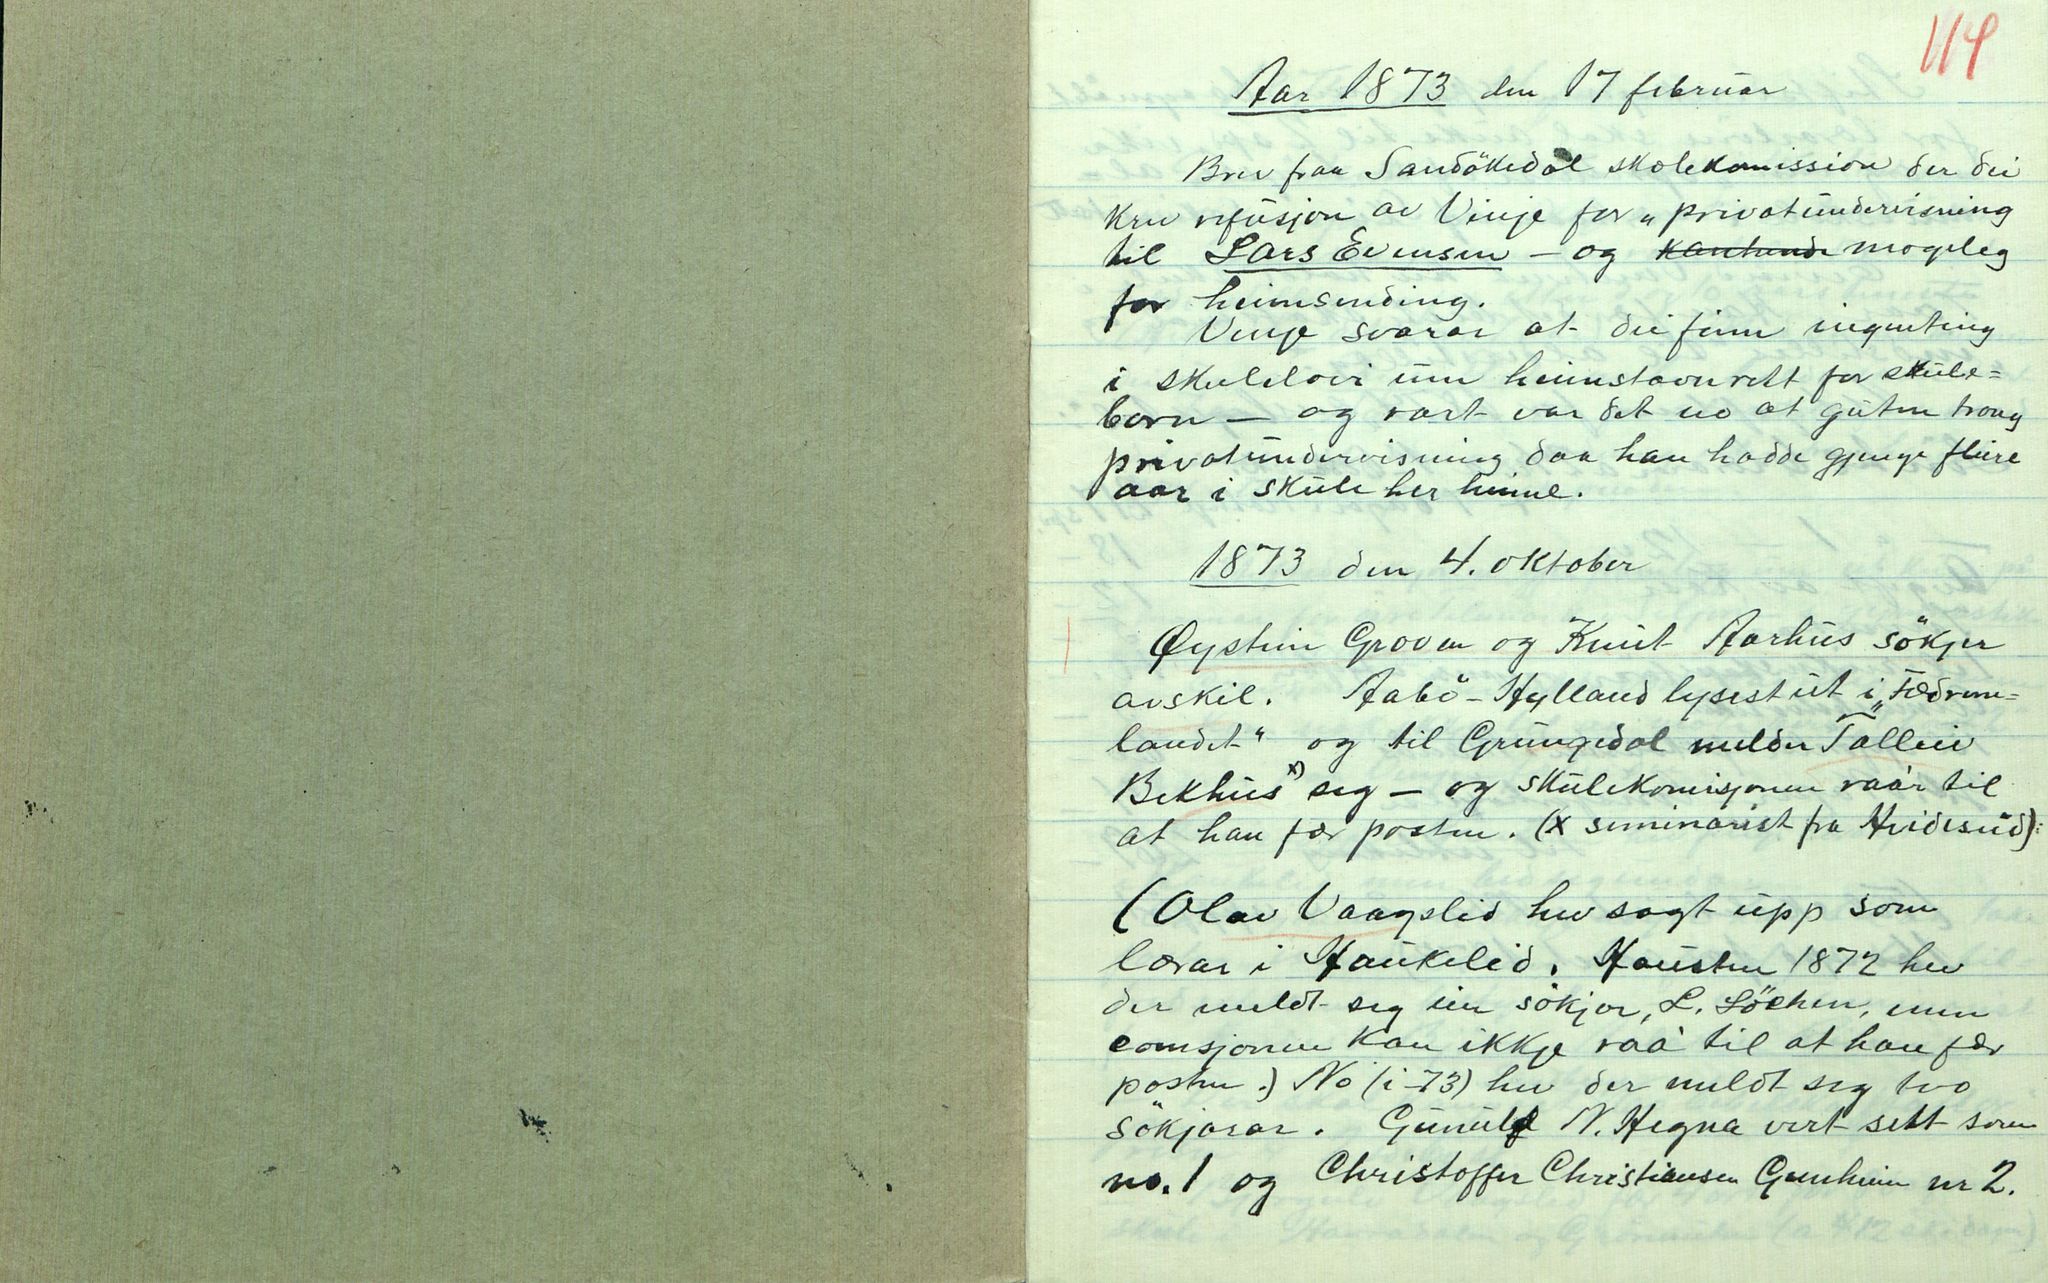 114
Aar 1873 den 17 februar
Brev fraa Sandökedal skolekomission der dei
krev refusjon av Vinje for „privatundervisning
til Lars Evensen – og mogeleg
for heimsending.
Vinje svarar at dei finn ingenting
i skulelovi um heimstavnrett for skule=
born – og rart var det no at guten trong
privatundervisning daa han hadde gjenge fleire
aar i skule her heime.
1873 den 4. oktober
Øystein Groven og Knut Aarhus sökjer
avskil. Aabö – Hylland lysest ut i „Fedrene=
landet" og til Grungedal melder Talleiv
Bekhus x) seg – og skulekomisjonen raar til
at han fær posten. (x seminarist fra Hvidesud):
(Olav Vaagslid hev sagt upp som
lærar i Haukelid. Hausten 1872 hev
der meldt seg ein sökjar, L. Löchen, men
comsjonen kan ikkje raa til at han fær
posten.) No (i -73) hev der meldt seg tvo
sökjarar. Gunulf N. Hegna vert sett som
no. 1 og Christoffer Christiansen Gunheim nr 2.